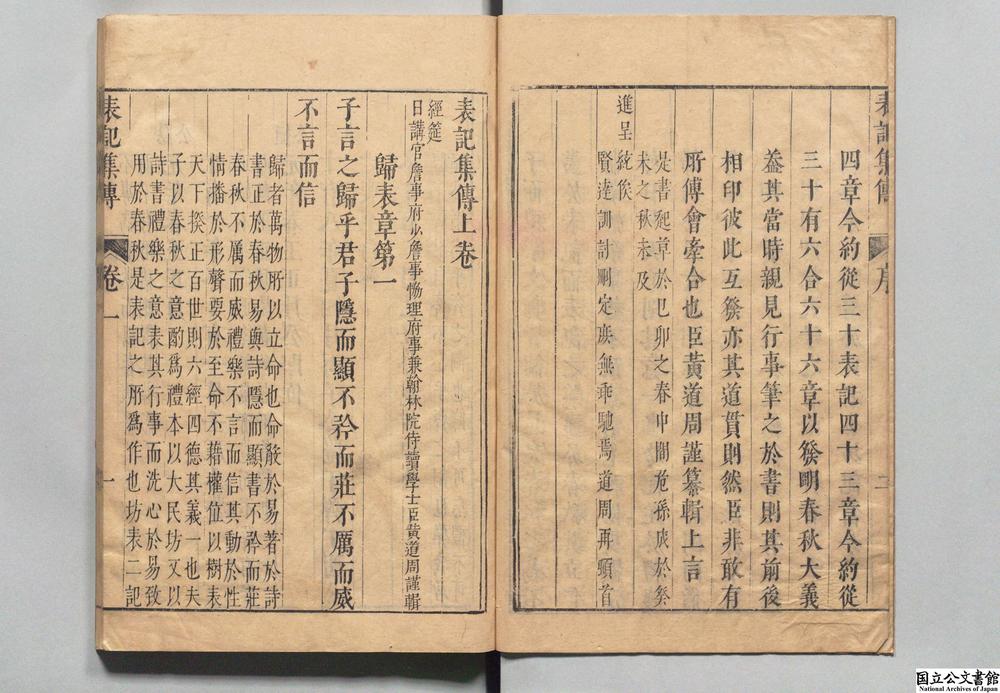 表記集傳
序
二
四章今約從三十表記四十三章今約從
三十有六合六十六章以發明春秋大義
葢其當時親見行事筆之於書則其前後
相印彼此互發亦其道貫則然臣非敢有
所傅會牽合也臣黃道周謹纂輯上言
是書起草於己卯之春中間危孫庚於癸
未之秋未及
進呈
統俟
賢達訓討刪定庶無乖馳焉道周再頓首
表記集傳上卷
經筵
日講官詹事府少詹事協理府事兼翰林院侍讀學士臣黃道周謹輯
歸表章第一
子言之歸乎君子隱而顯不矜而莊不厲而威
不言而信
歸者萬物所以立命也命殽於易著於詩
書正於春秋易與詩隱而顯書不矜而莊
春秋不厲而威禮樂不言而信其動於性
情播於形聲要於至命不藉權位以樹表
天下揆正百世則六經四德其義一也夫
子以春秋之意酌為禮本以大民坊又以
詩書禮樂之意表其行事而洗心於易致
用於春秋是表記之所為作也坊表二記
表記集傳
卷一
一
国立公文書館
National Archives of Japan